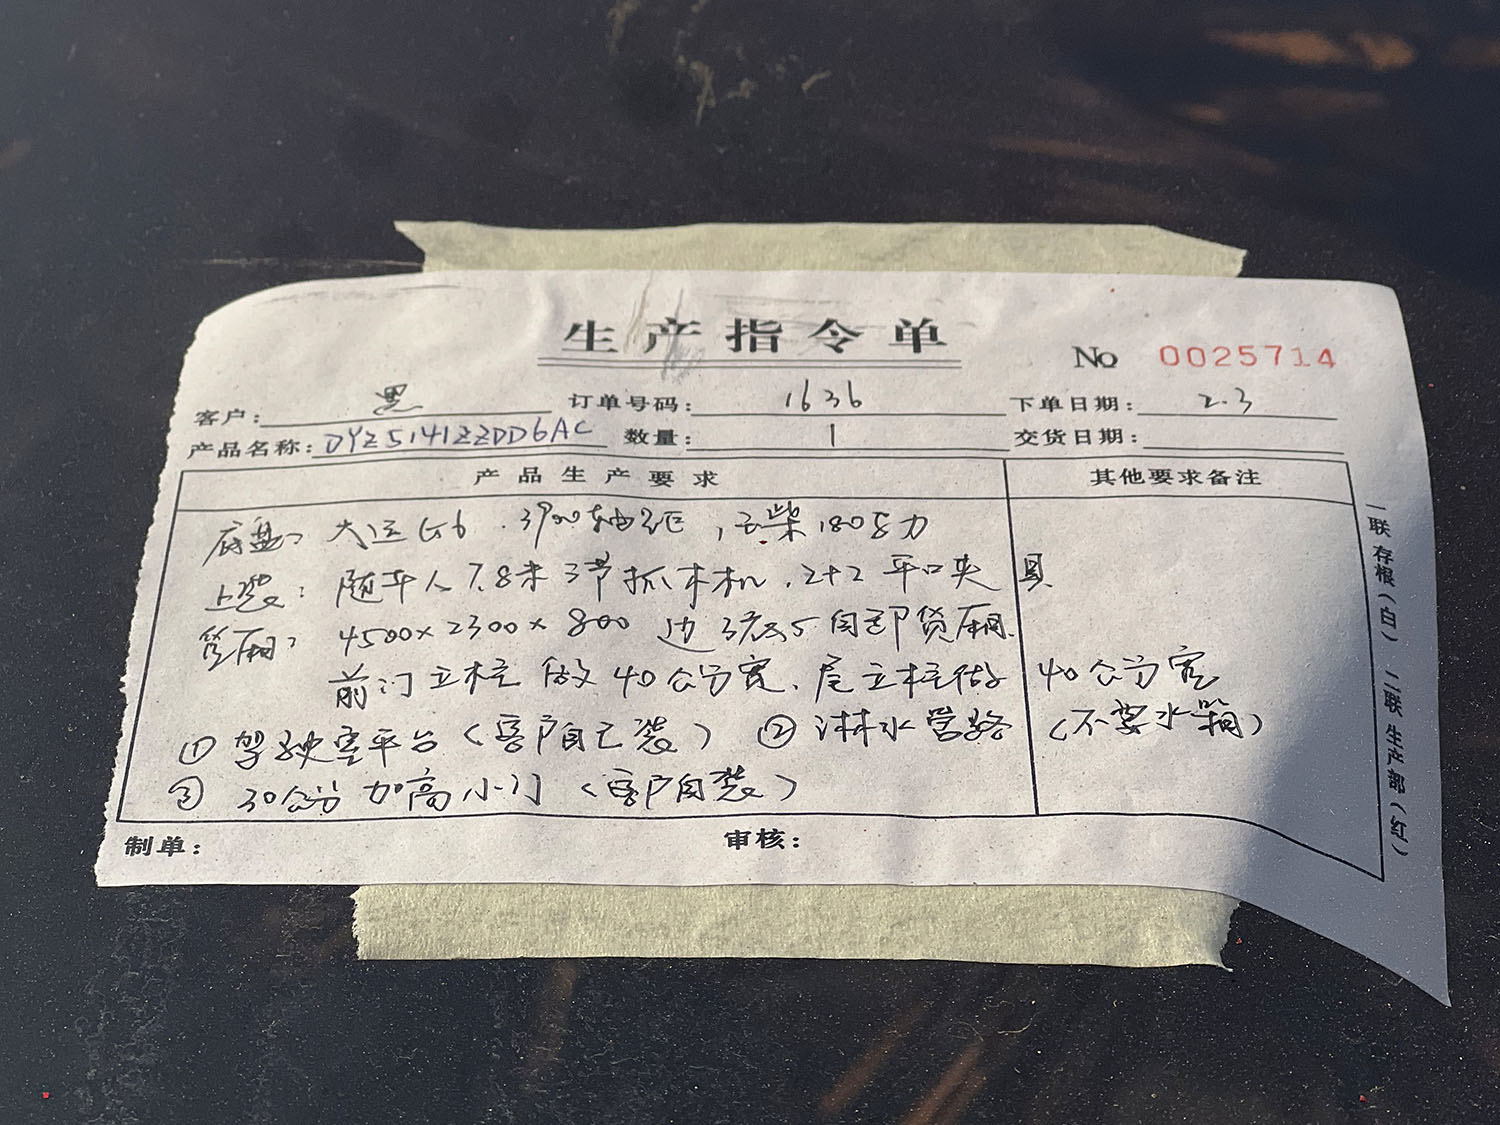 生产指令单
No 0025714
客户: 黑 订单号码: 1636 下单日期: 2.3
产品名称: DYZ5141ZZDD6AC 数量: 1 交货日期:
产品生产要求 其他要求备注
底盘: 大运G6.3900轴距,玉柴180马力
上装: 随车人7.8米3节抓木机.2+2平口夹具
货厢: 4500×2300×800 边3底5自卸货厢.
前门立柱做40公分宽、尾立柱做40公分宽
① 驾驶室平台(客户自己装) ② 淋水管路(不要水箱)
③ 30公分加高小门(客户自装)
制单: 审核:
一联存根(白) 二联生产部(红)